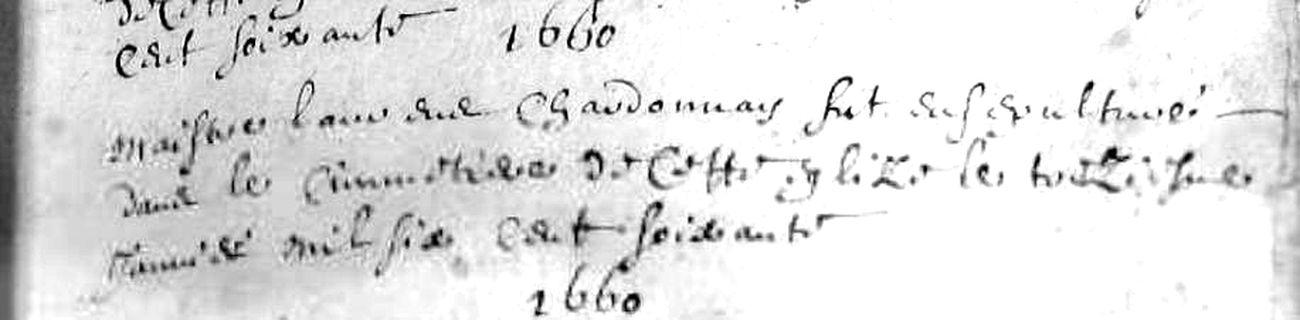 cent soixante 1660
Maistre Laurent Chardonnay fut ensepulturé
dans le Cimmetiere de Cette Eglize le treiziesme
Janvier mil six cent soixante
1660